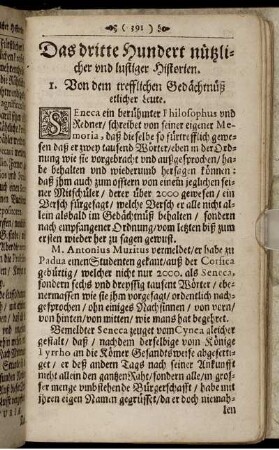 ( 391 )
Das dritte Hundert nützli-
cher vnd lustiger Historien.
1. Von dem trefflichen Gedächtnüß
etlicher leute.
SEneca ein berühmter Philosophus vnd
Redner/ schreibet von seiner eigener Me-
moria, daß dieselbe so fürtrefflich gewe-
sen daß er zwey tausend Wörter/eben in der Ord-
nung wie sie vorgebracht vnd außgesprochen/ ha-
be behalten vnd wiederumb hersagen können:
daß ihm auch zum offtern von einem jeglichen sei-
ner Mitschüler/ derer über 2000 gewesen/ ein
Versch fürgesagt/ welche Versch er alle nicht al-
lein alsbald im Gedächtnüß behalten/ sondern
nach empfangener Ordnung/ vom letzten biß zum
ersten wieder her zu sagen gewust.
M. Antonius Muxius vermeldet/er habe zu
Padua einen Studenten gekant/auß der Corsica
gebürtig/ welcher nicht nur 2000. als Seneca,
sondern sechs vnd dreyssig tausend Wörter/ eben-
ermassen wie sie ihm vorgesagt/ ordentlich nach-
gesprochen/ ohn einiges Nachsinnen/ von vorn/
von hinten/von mitten/ wie mans hat begehret.
Bemeldter Seneca zeuget vom Cynea gleicher
gestalt/ daß/ nachdem derselbige vom Könige
Pyrrho an die Römer Gesandtsweise abgeferti-
get/ er deß andern Tags nach seiner Ankunfft
nicht allein den gantzen Raht/ sondern alle/ in gros-
ser menge vmbstehende Bürgerschafft/ habe mit
ihren eigen Namen gegrüsset/ da er doch niemah-
len